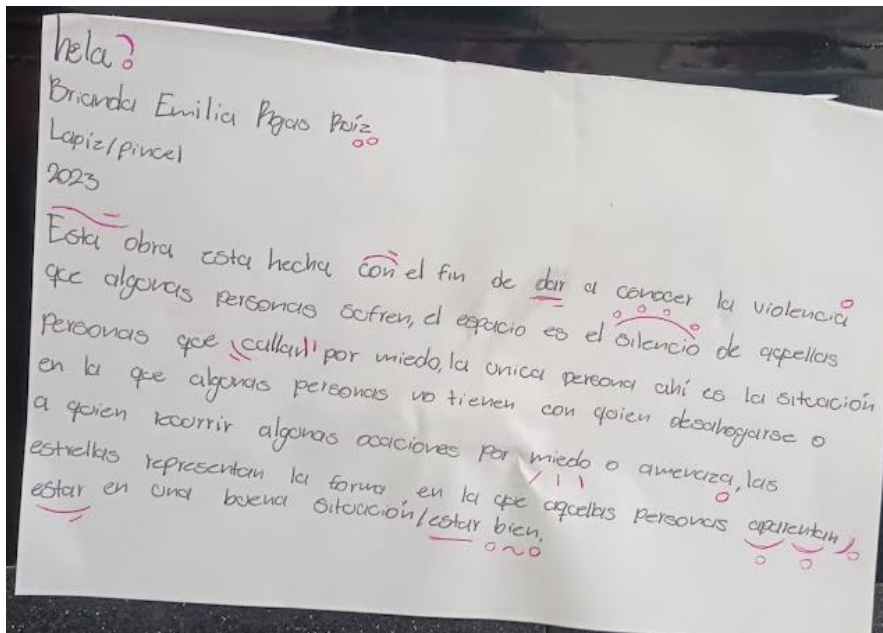 hela?
Brianda Emilia Rojas Ruíz
Lapiz/pincel
2023
Esta obra esta hecha con el fin de dar a conocer la violencia
que algunas personas sufren, el espacio es el silencio de aquellas
personas que "callan" por miedo, la unica persona ahí es la situación
en la que algunas personas no tienen con quien desahogarse o
a quien recurrir algunas ocaciones por miedo o amenaza, las
estrellas representan la forma en la que aquellas personas aparentan
estar en una buena situación/estar bien.